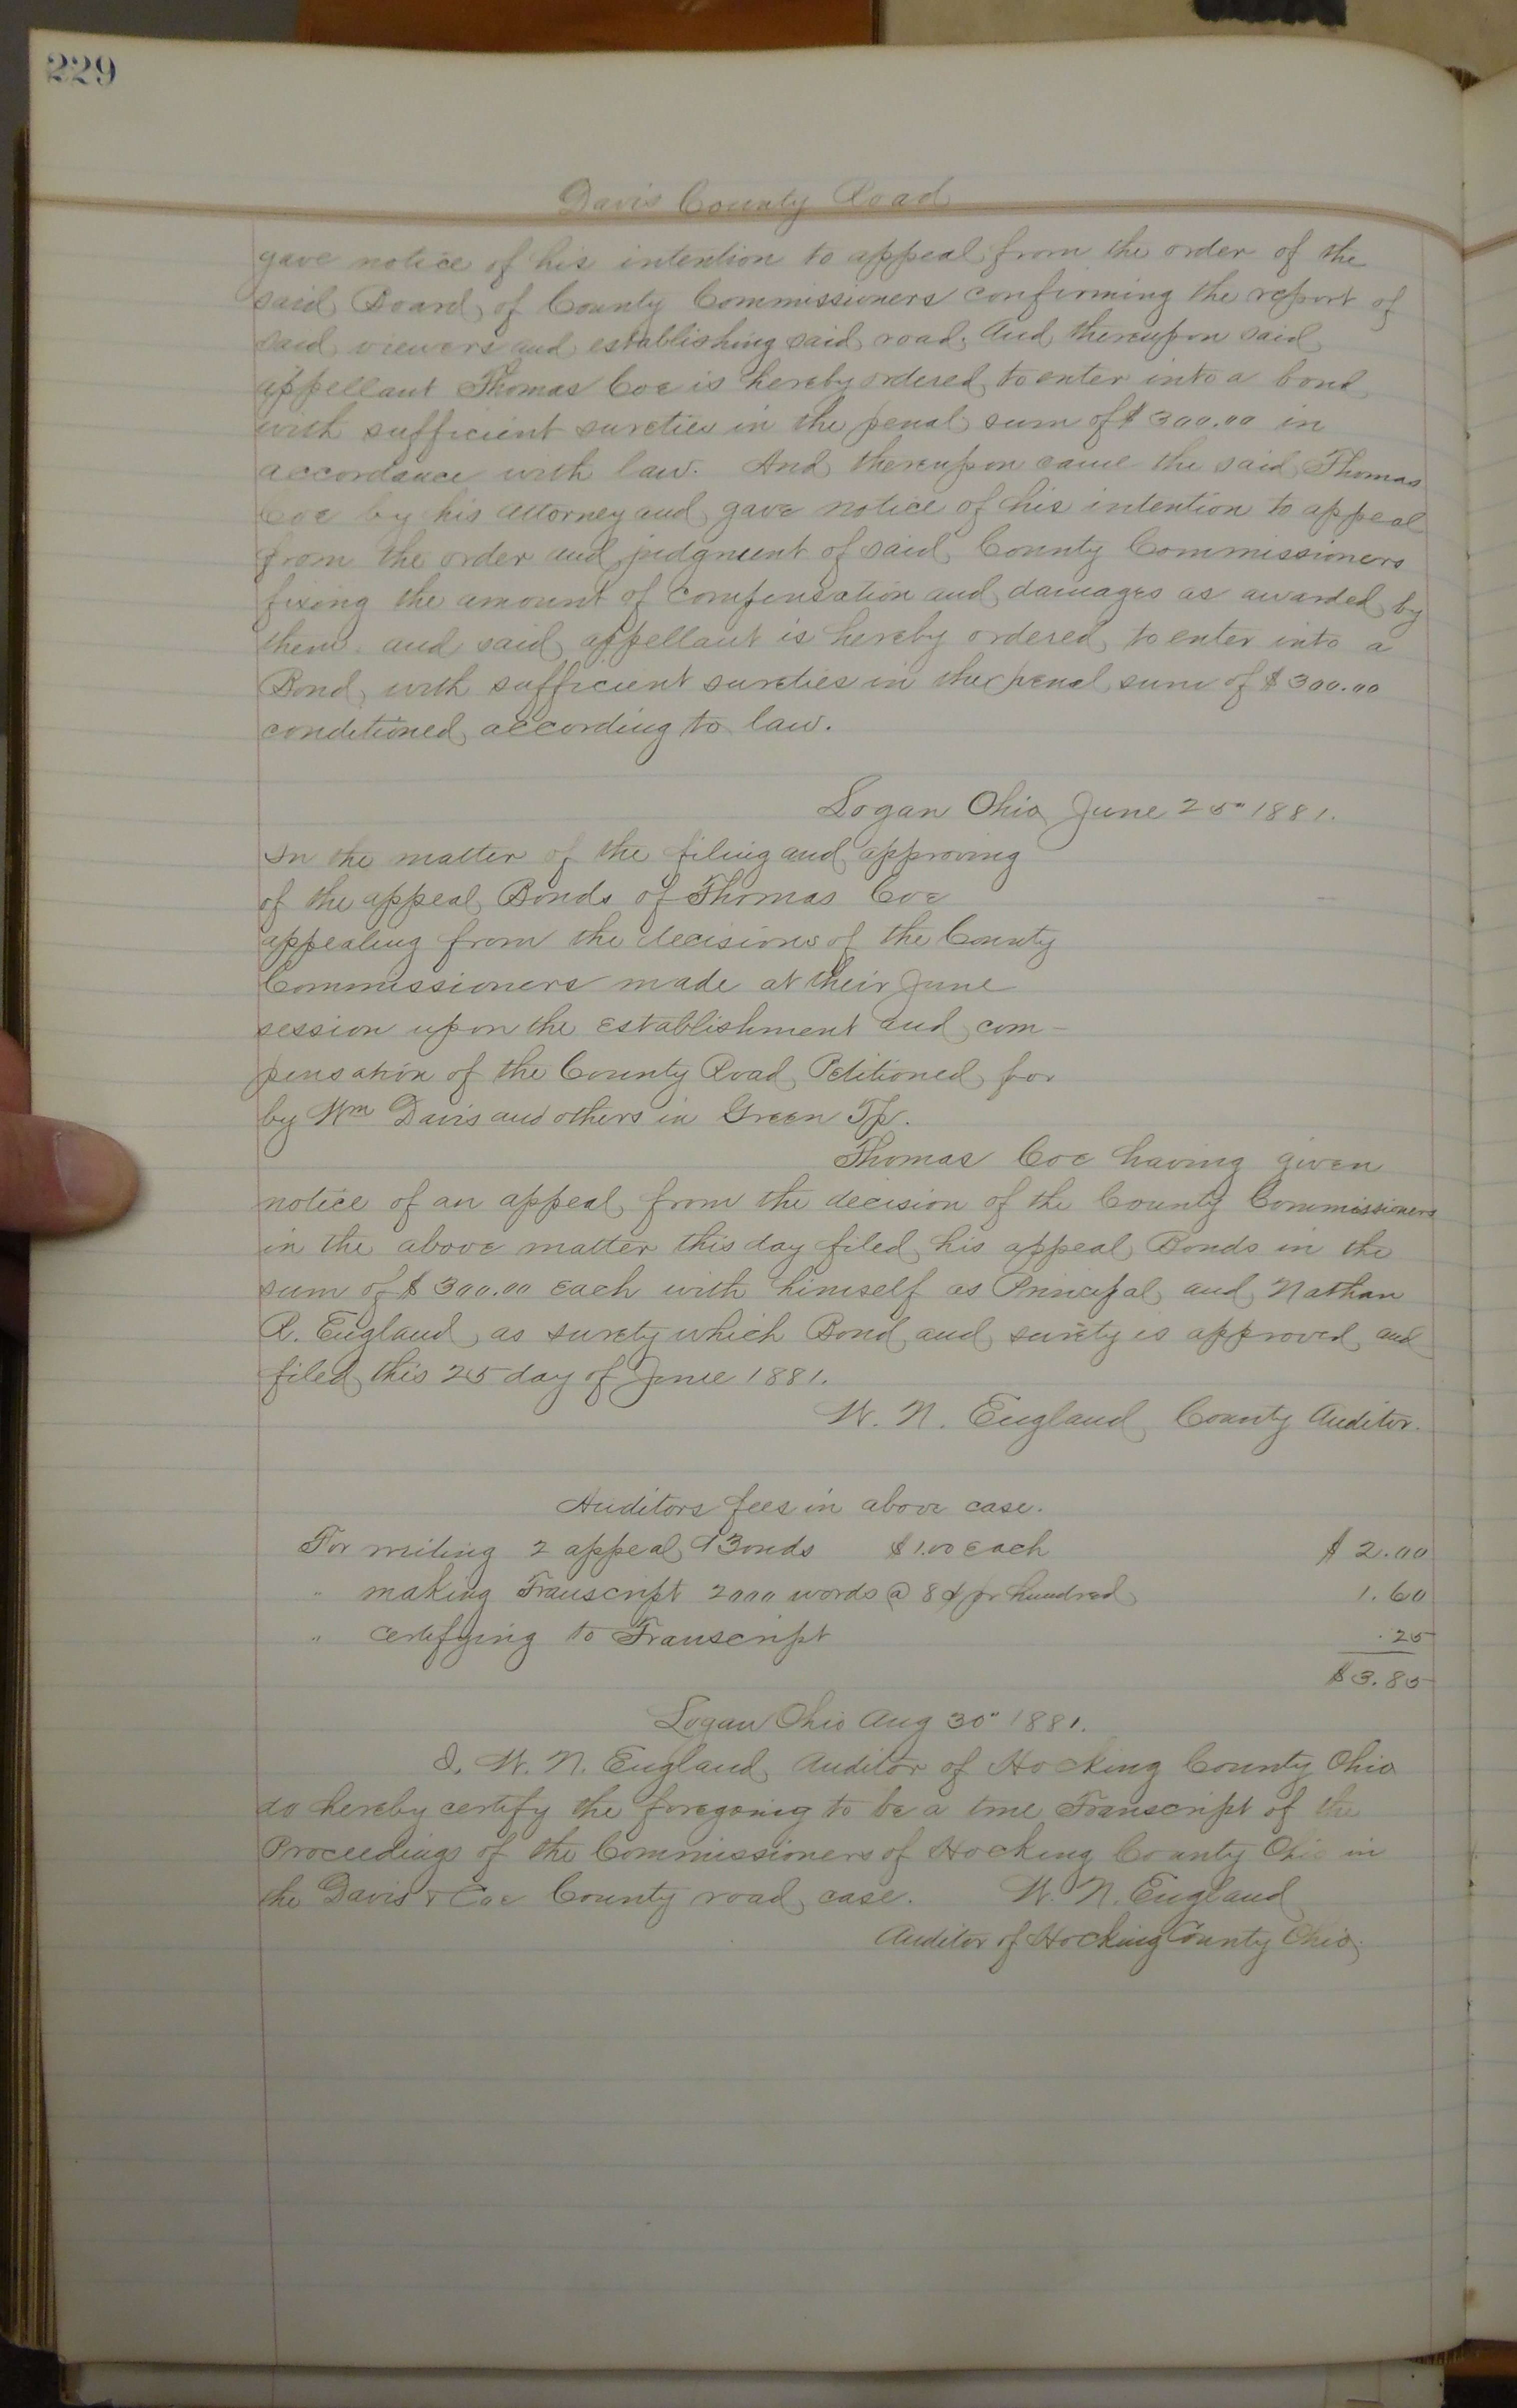 229
Davis County Road
gave notice of his intention to appeal from the order of the
said Board of County Commissioners confirming the report of
said viewers and establishing said road. And thereupon said
appellant Thomas Coe is hereby ordered to enter into a bond
with sufficient sureties in the penal sum of $300.00 in
accordance with law. And thereupon came the said Thomas
Coe by his Attorney and gave notice of his intention to appeal
from the order and judgment of said County Commissioners
fixing the amount of compensation and damages as awarded by
them. and said appellant is hereby ordered to enter into a
Bond with sufficient sureties in the penal sum of $300.00
conditioned according to law.
Logan Ohio June 25" 1881.
In the matter of the filing and approving
of the appeal Bonds of Thomas Coe
appealing from the decisions of the County
Commissioners made at their June
session upon the establishment and com-
pensation of the County Road Petitioned for
by Wm Davis and others in Green Tp.
Thomas Coe having given
notice of an appeal from the decision of the County Commissioners
in the above matter this day filed his appeal Bonds in the
sum of $300.00 each with himself as Principal and Nathan
R. England as surety which Bond and surety is approved and
filed this 25 day of June 1881.
W. N. England County Auditor.
Auditors fees in above case.
For writing 2 appeal Bonds $1.00 each $2.00
" making Transcript 2000 words @ 8¢ pr hundred 1.60
" certifying to Transcript .25
$3.85
Logan Ohio Aug 30" 1881.
I, W. N. England Auditor of Hocking County Ohio
do hereby certify the foregoing to be a true Transcript of the
Proceedings of the Commissioners of Hocking County Ohio in
the Davis & Coe County road case. W. N. England
Auditor of Hocking County Ohio.